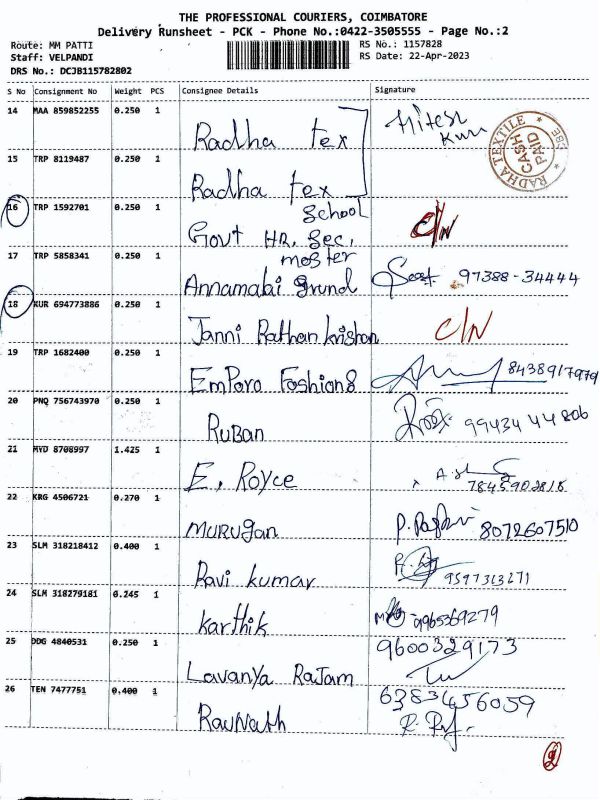 THE PROFESSIONAL COURIERS, COIMBATORE
Delivery Runsheet - PCK - Phone No.:0422-3505555 - Page No.:2
Route: MM PATTI RS No.: 1157828
Staff: VELPANDI RS Date: 22-Apr-2023
DRS No.: DCJB115782802
S No Consignment No Weight PCS Consignee Details Signature
14 MAA 859852255 0.250 1 Radha tex Hitesh
RADHA TEXTILE * CBE *
CASH PAID
15 TRP 8119487 0.250 1 Radha tex
16 TRP 1592701 0.250 1 Govt HR. Sec. School C/N
17 TRP 5858341 0.250 1 97388-34444
18 KUR 694773886 0.250 1 Janni Rathan krishan C/N
19 TRP 1682400 0.250 1 EmPoro Foshions 8438917979
20 PNQ 756743970 0.250 1 RuBan 99434 44806
21 MYD 8708997 1.425 1 E. Royce
22 KRG 4506721 0.270 1 MURUgan 8072607510
23 SLM 318218412 0.400 1 Ravi kumar
24 SLM 318279181 0.245 1 Karthik 9965369279
25 DDG 4840531 0.250 1 Lavanya Rajam 9600329173
26 TEN 7477751 0.400 1 6383456059